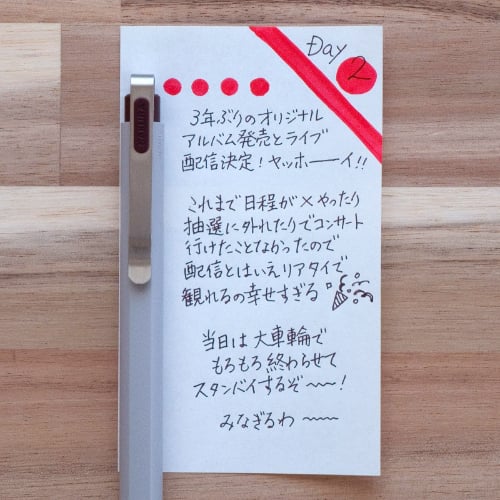 Day 2
3年ぶりのオリジナル
アルバム発売とライブ
配信決定!ヤッホーーイ!!
これまで日程が×やったり
抽選に外れたりでコンサート
行けたことなかったので
配信とはいえリアタイで
観れるの幸せすぎる
当日は大車輪で
もろもろ終わらせて
スタンバイするぞ〜〜!
みなぎるわ〜〜